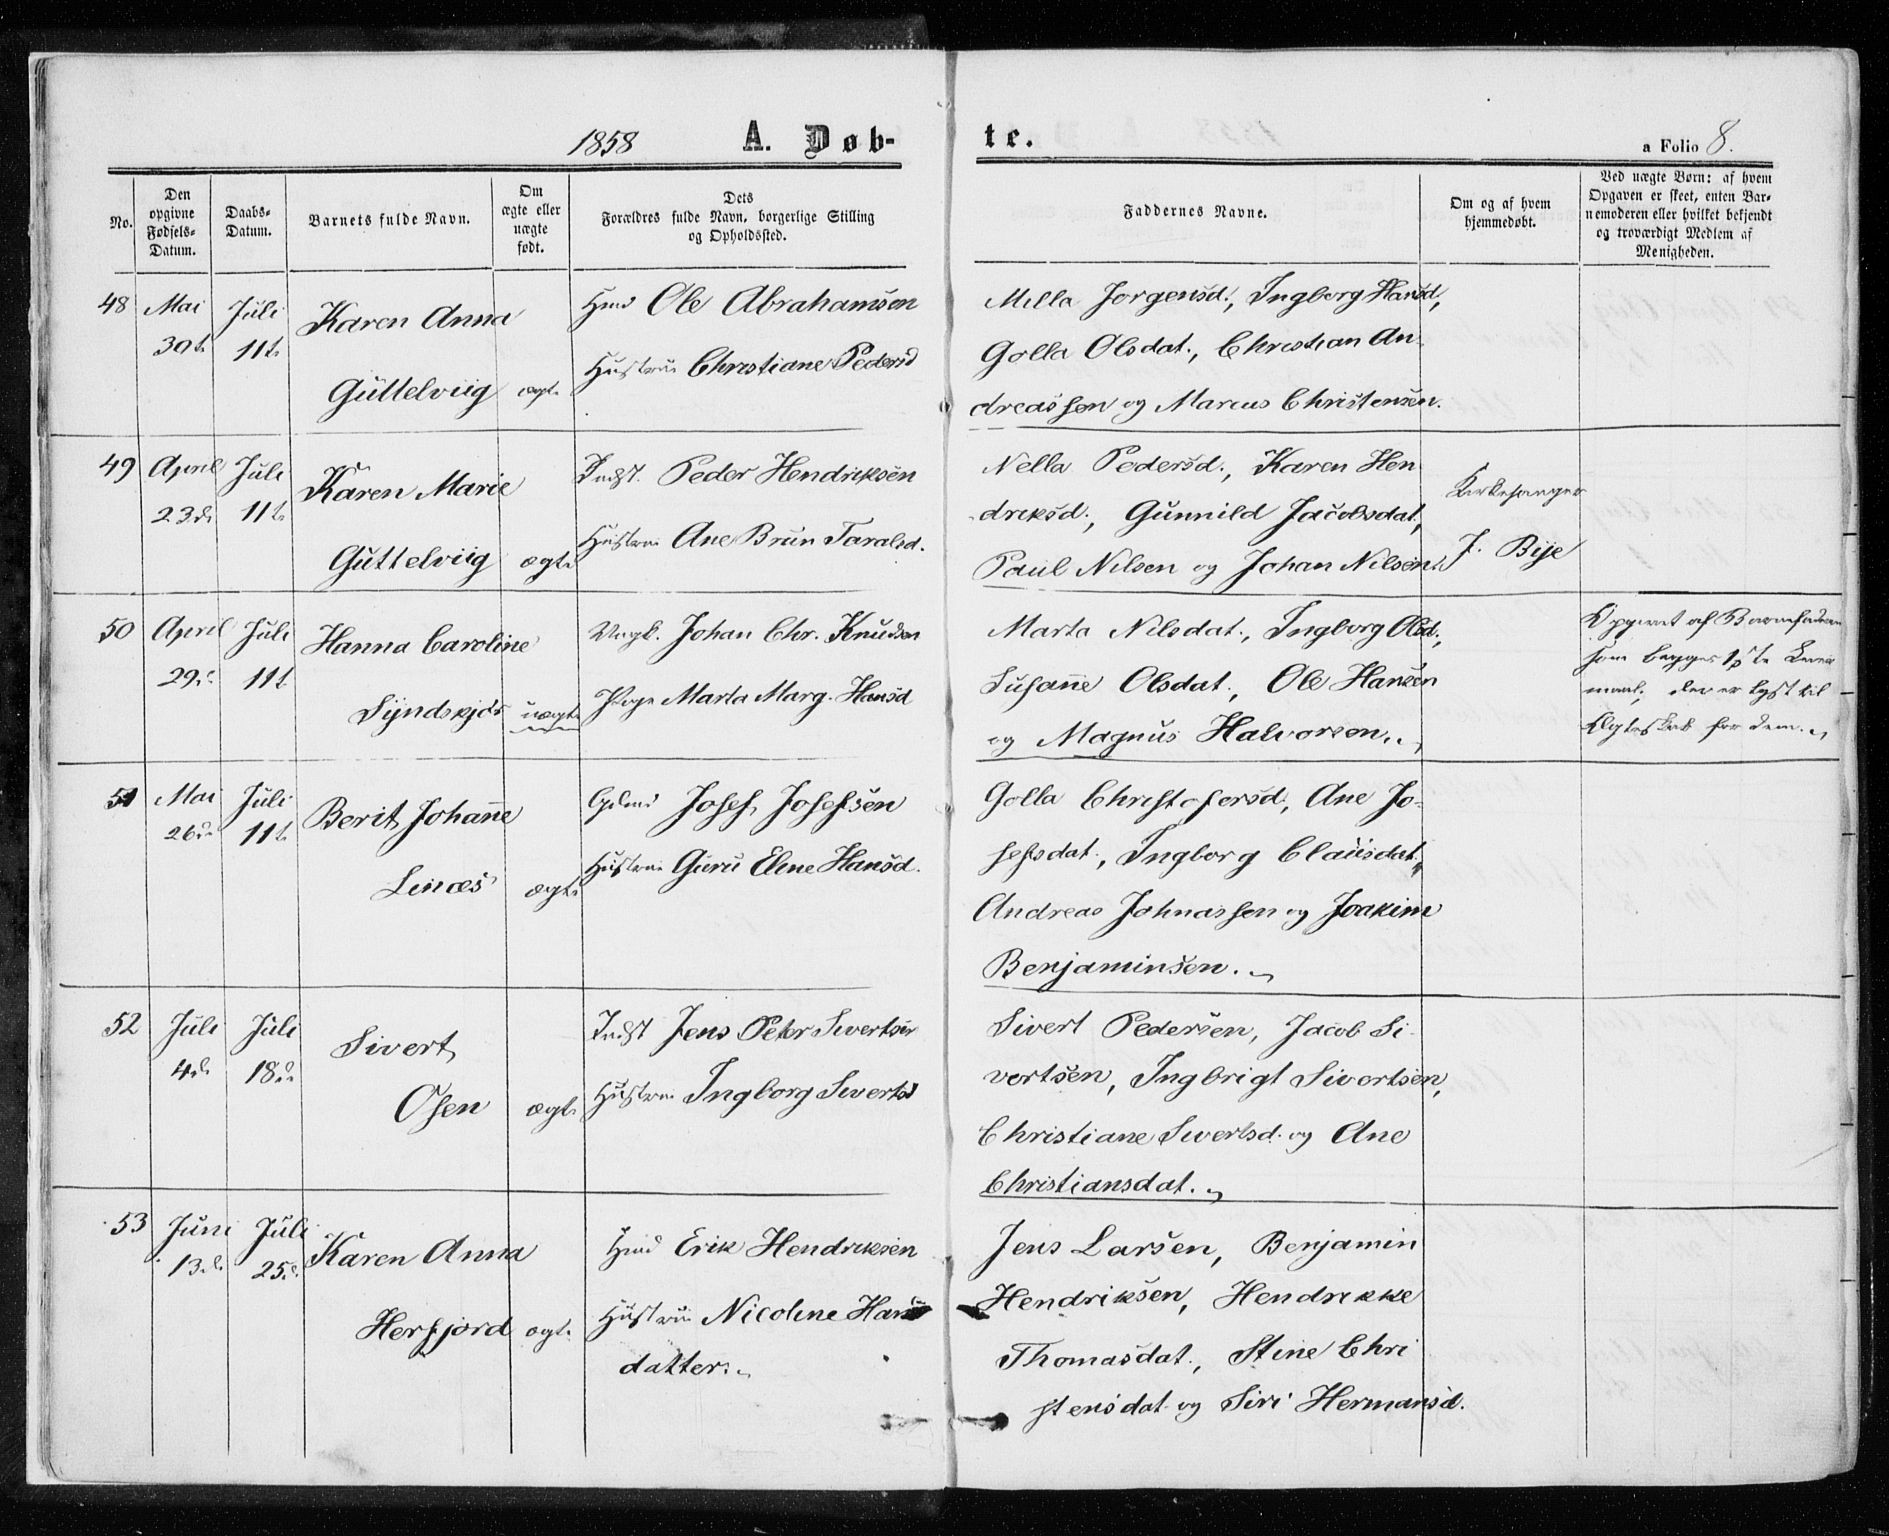 1858 A. Døb-
te. a Folio 8.
No.
Den opgivne Fødsels-Datum.
Daabs-Datum.
Barnets fulde Navn.
Om ægte eller uægte født.
Dets Forældres fulde Navn, borgerlige Stilling og Opholdssted.
Faddernes Navne.
Om og af hvem hjemmedøbt.
Ved uægte Børn: af hvem Opgaven er skeet, enten Barnemoderen eller hvilket bekjendt og troværdigt Medlem af Menigheden.
48 Mai 30te Juli 11te
Karen Anna
Guttelviig ægte
Hmd Ole Abrahamsen
Hustrue Christiane Pedersd
Mella Jorgensd., Ingborg Hansd,
Golla Olsdat., Christian An-
dreassen og Marcus Christensen.
49 April 23de Juli 11te
Karen Marie
Guttelviig ægte
Indst. Peder Hendriksen
Hustrue Ane Brun Taralsd.
Nella Pedersd., Karen Hen
driksd., Gunnild Jacobsdat,
Paul Nilsen og Johan Nilsen.
Kirkesanger
J. Bye
50 April 29de Juli 11te
Hanna Caroline
Syndskjør uægte
Ungk. Johan Chr. Knudsen
Pige Marta Marg. Hansd
Marta Nilsdat., Ingborg Olsd.,
Susanne Olsdat., Ole Hansen
og Magnus Halvorsen.
Opgivet af Barnefaderen
som begges 1ste Leier
maal; der er lyst til
Ægteskab for dem.
51 Mai 26de Juli 11te
Berit Johanne
Linæs ægte
Gdmd Josef Josefsen
Hustrue Guru Eline Hansd.
Golla Christofersd., Ane Jo-
sefsdat., Ingborg Clausdat.,
Andreas Johnassen og Joakim
Benjaminsen.
52 Juli 4de Juli 18de
Sivert
Osen ægte
Indst Jens Peter Sivertsen
Hustrue Ingborg Sivertsd
Sivert Pedersen, Jacob Si
vertsen, Ingbrigt Sivertsen,
Christiane Sivertsd. og Ane
Christiansdat.
53 Juni 13de Juli 25de
Karen Anna
Herfjord ægte
Hmd Erik Hendriksen
Hustrue Nicoline Hans
datter.
Jens Larsen, Benjamin
Hendriksen, Hendrikke
Thomasdat., Stine Chri
stensdat og Siri Hermansd.